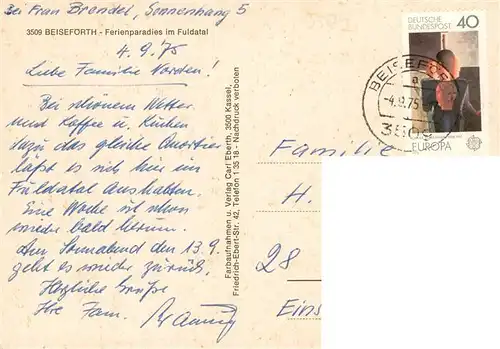 Bei Frau Brandel, Sonnenhang 5
3509 BEISEFÖRTH - Ferienparadies im Fuldatal
4.9.75
Liebe Familie Norden!
Bei schönem Wetter
und Kaffee u. Kuchen
dazu das gleiche Quartier
läßt es sich hier im
Fuldatal aushalten.
Eine Woche ist schon
wieder bald herum.
Am Sonnabend den 13.9.
geht es wieder zurück.
Herzliche Grüße
Ihre Fam.
Farbaufnahmen u. Verlag Carl Eberth, 3500 Kassel,
Friedrich-Ebert-Str. 42, Telefon 1 35 18 - Nachdruck verboten
DEUTSCHE
BUNDESPOST 40
EUROPA
BEISEFÖR
-4.9.75
3509
Familie
H.
28
Eins